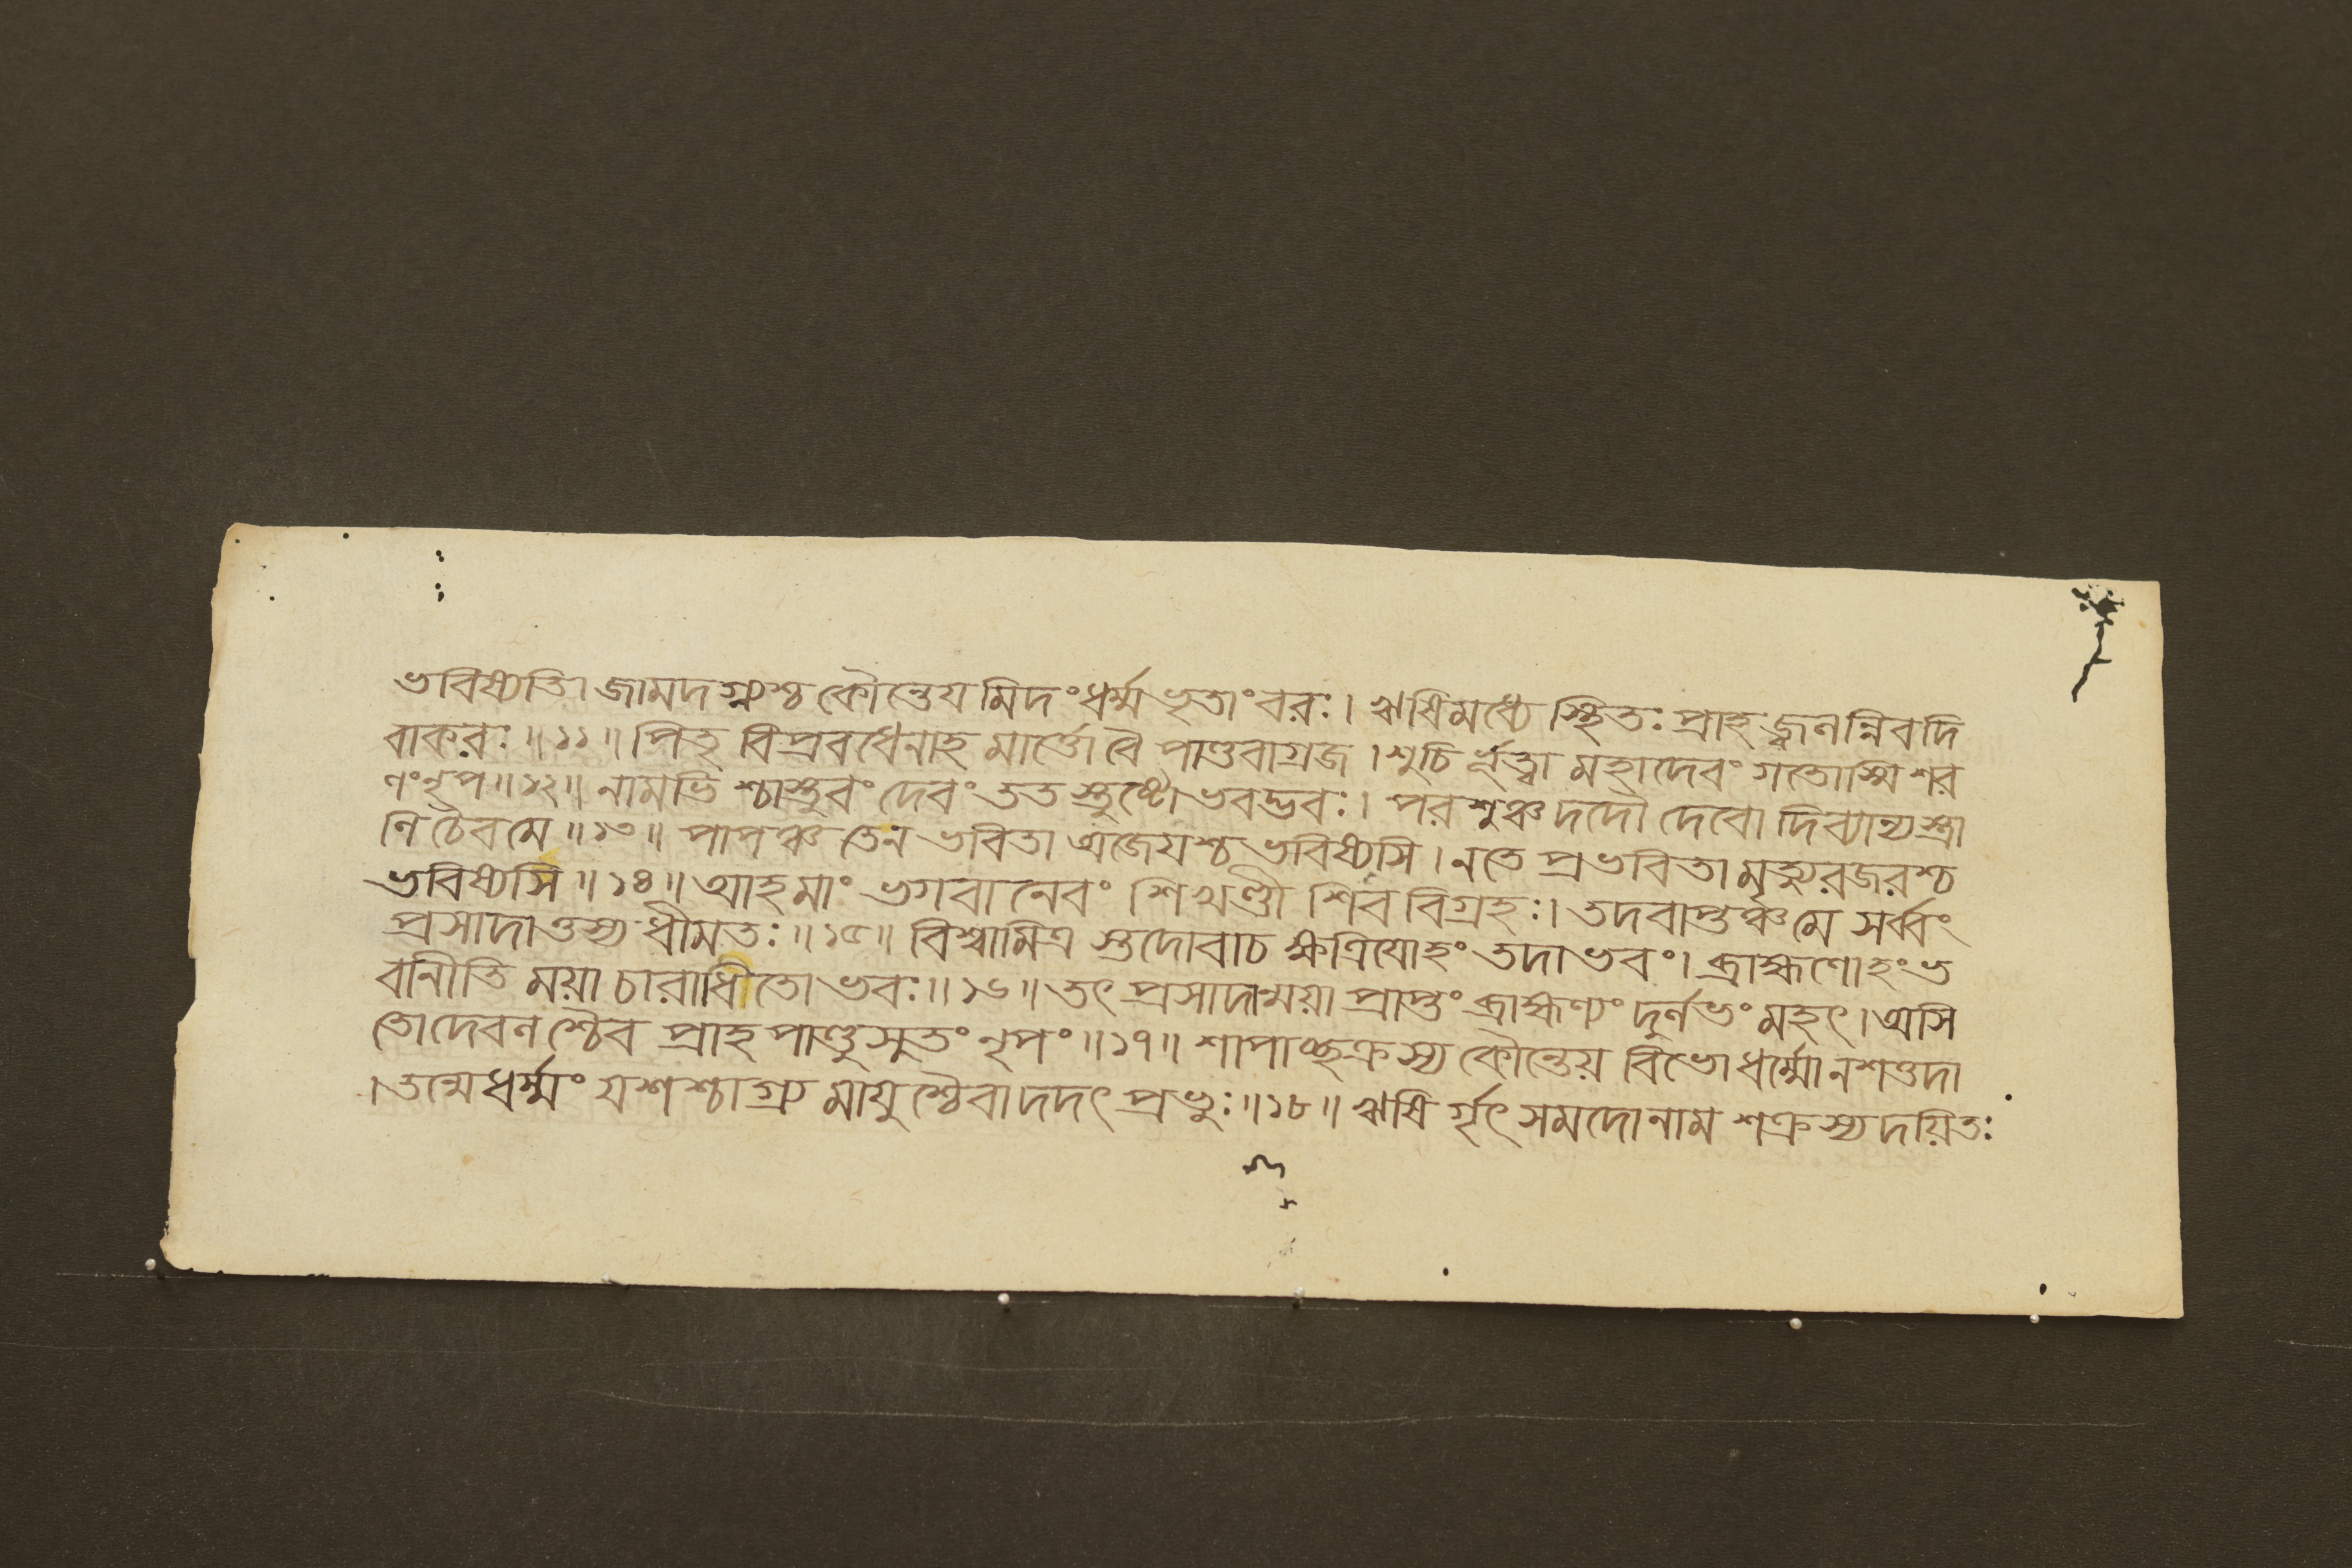 ভবিষ্যতি। জামদগ্ন্যশ্চ কৌন্তেয মিদং ধর্ম্ম ভৃতাং বরঃ। ঋষিমধ্যে স্থিতঃ প্রাহ জ্বলন্নিব দি
বাকরঃ ॥১১॥ পিতৃ বিপ্রবধেনাহ মার্ত্তো বৈ পাণ্ডবাগ্রজ । শুচি র্ভূত্বা মহাদেবং গতোস্মি শর
ণং নৃপ ॥১২॥ নামভি শ্চাস্তুবং দেবং তত স্তুষ্টো ভবদ্ভবঃ। পরশুঞ্চ দদৌ দেবো দিব্যান্যস্ত্রা
ণি চৈব মে ॥১৩॥ পাপঞ্চ তেন ভবিতা অজেযশ্চ ভবিষ্যসি । নতে প্রভবিতা মৃত্যুরজরশ্চ
ভবিষ্যসি ॥১৪॥ আহ মাং ভগবানেবং শিখণ্ডী শিব বিগ্রহঃ। তদবাপ্তঞ্চ মে সর্ব্বং
প্রসাদাত্তস্য ধীমতঃ ॥১৫॥ বিশ্বামিত্র স্তদোবাচ ক্ষত্রিযোহং তদাভবং। ব্রাহ্মণোহং ভ
বানীতি ময়া চারাধীতো ভবঃ ॥১৬॥ তৎ প্রসাদান্ময়া প্রাপ্তং ব্রাহ্মণ্যং দুর্লভং মহৎ। অসি
তো দেবলশ্চৈব প্রাহ পাণ্ডুসুতং নৃপং ॥১৭॥ শাপাচ্ছক্রস্য কৌন্তেয় বিভো ধর্ম্মোনশত্তদা
। তন্মে ধর্ম্মং যশশ্চাগ্র্য মাযুশ্চৈবাদদৎ প্রভুঃ ॥১৮॥ ঋষি র্গৃৎসমদো নাম শক্রস্য দয়িতঃ